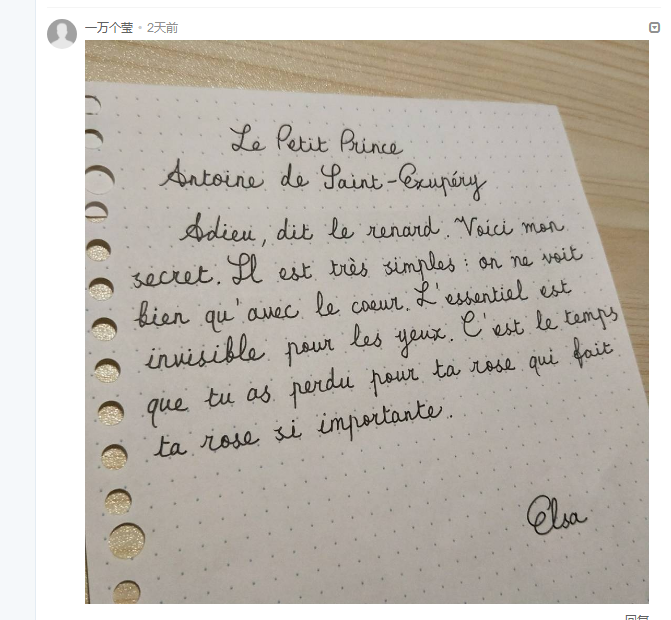 一万个莹 • 2天前
Le Petit Prince
Antoine de Saint-Exupéry
Adieu, dit le renard. Voici mon
secret. Il est très simples : on ne voit
bien qu'avec le coeur. L'essentiel est
invisible pour les yeux. C'est le temps
que tu as perdu pour ta rose qui fait
ta rose si importante.
Elsa